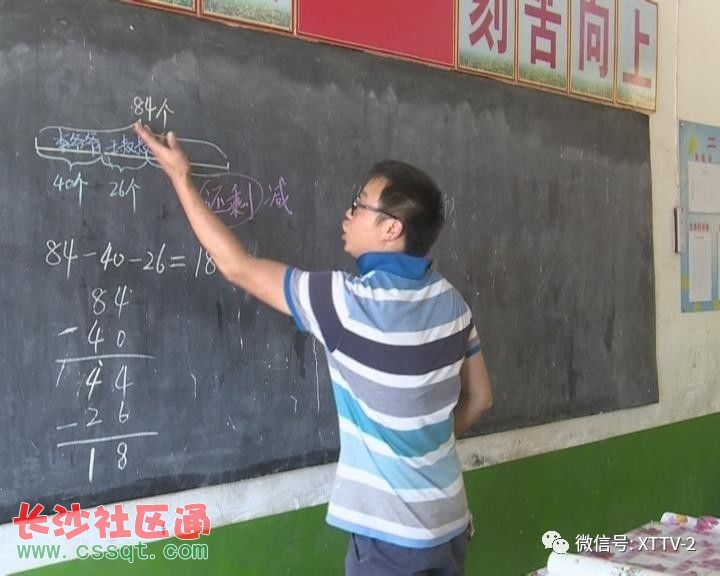 刻苦向上
84个
李爷爷 王叔叔
40个 26个
还剩 减
84-40-26=18
84
-40
44
-26
18
长沙社区通
www.cssqt.com
微信号: XTTV-2